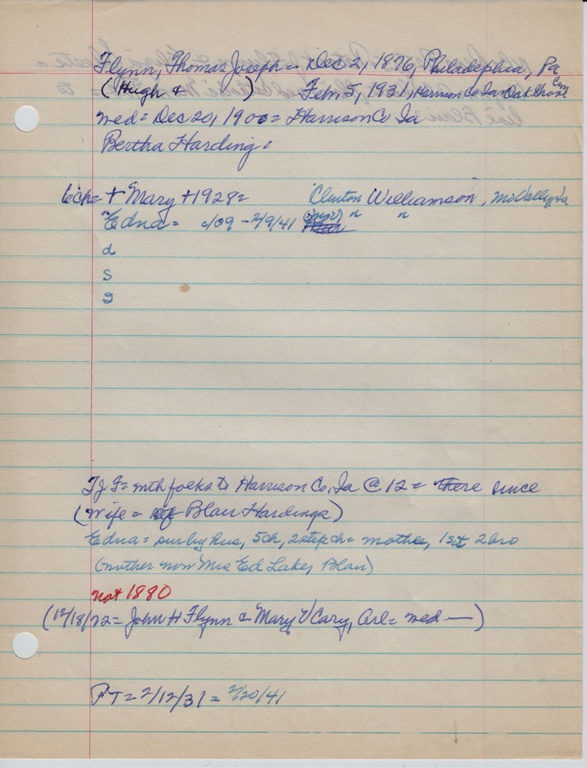 Flynn, Thomas Joseph = Dec 2, 1876, Philadelphia, Pa
(Hugh & ) Feb 5, 1931, Harrison Co Ia Oak Grove Cem
wed = Dec 20, 1900 = Harrison Co Ia
Bertha Harding =
6 ch = + Mary + 1928 = Clinton Williamson, Mo Valley Ia
"Edna = c/09 - 2/9/41 (mov) " "
d
s
s
T J F = with folks to Harrison Co, Ia @ 12 = there since
(Wife = Blair Hardings)
Edna = surby hus, 5ch, 2stepch = mother, 1 sist 2 bro
(mother now Mrs Ed Lake, Blair)
not 1880
(12/18/72 = John H Flynn & Mary V Cary, Arl = wed —)
PT = 2/12/31 = 2/20/41